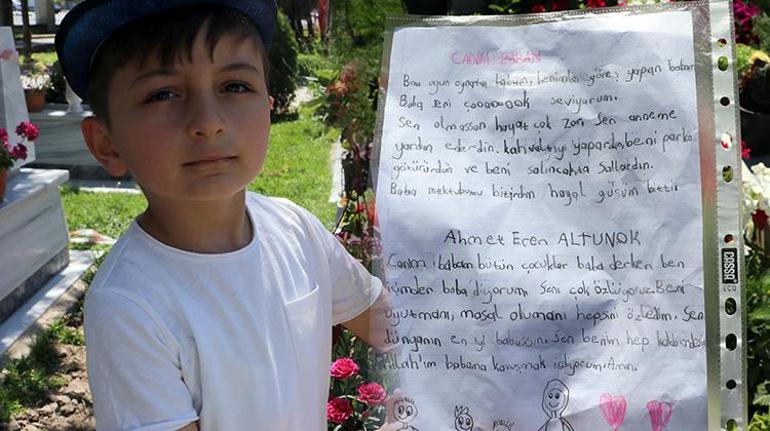 CANIM BABAM
Ban oyun oynatan babam, benimle güreş yapan babam
Baba seni çooooook seviyorum.
Sen olmassan hayat çok zor. Sen anneme
yardım ederdin. kahvaltıyı yapardın, beni parka
götürürdün ve beni salıncakta sallardın.
Baba mektubumu bitirdim hayal gücüm bitti
Ahmet Eren ALTUNOK
Canım babam bütün çocuklar baba derken ben
içimden baba diyorum. Seni çok özlüyoruz. Beni
uyutmanı, masal okumanı hepsini özledim. Sen
dünyanın en iyi babasısın. Sen benim hep kalbimdesin
Allah'ım babama kavuşmak istiyorum. Amin.
CASSA